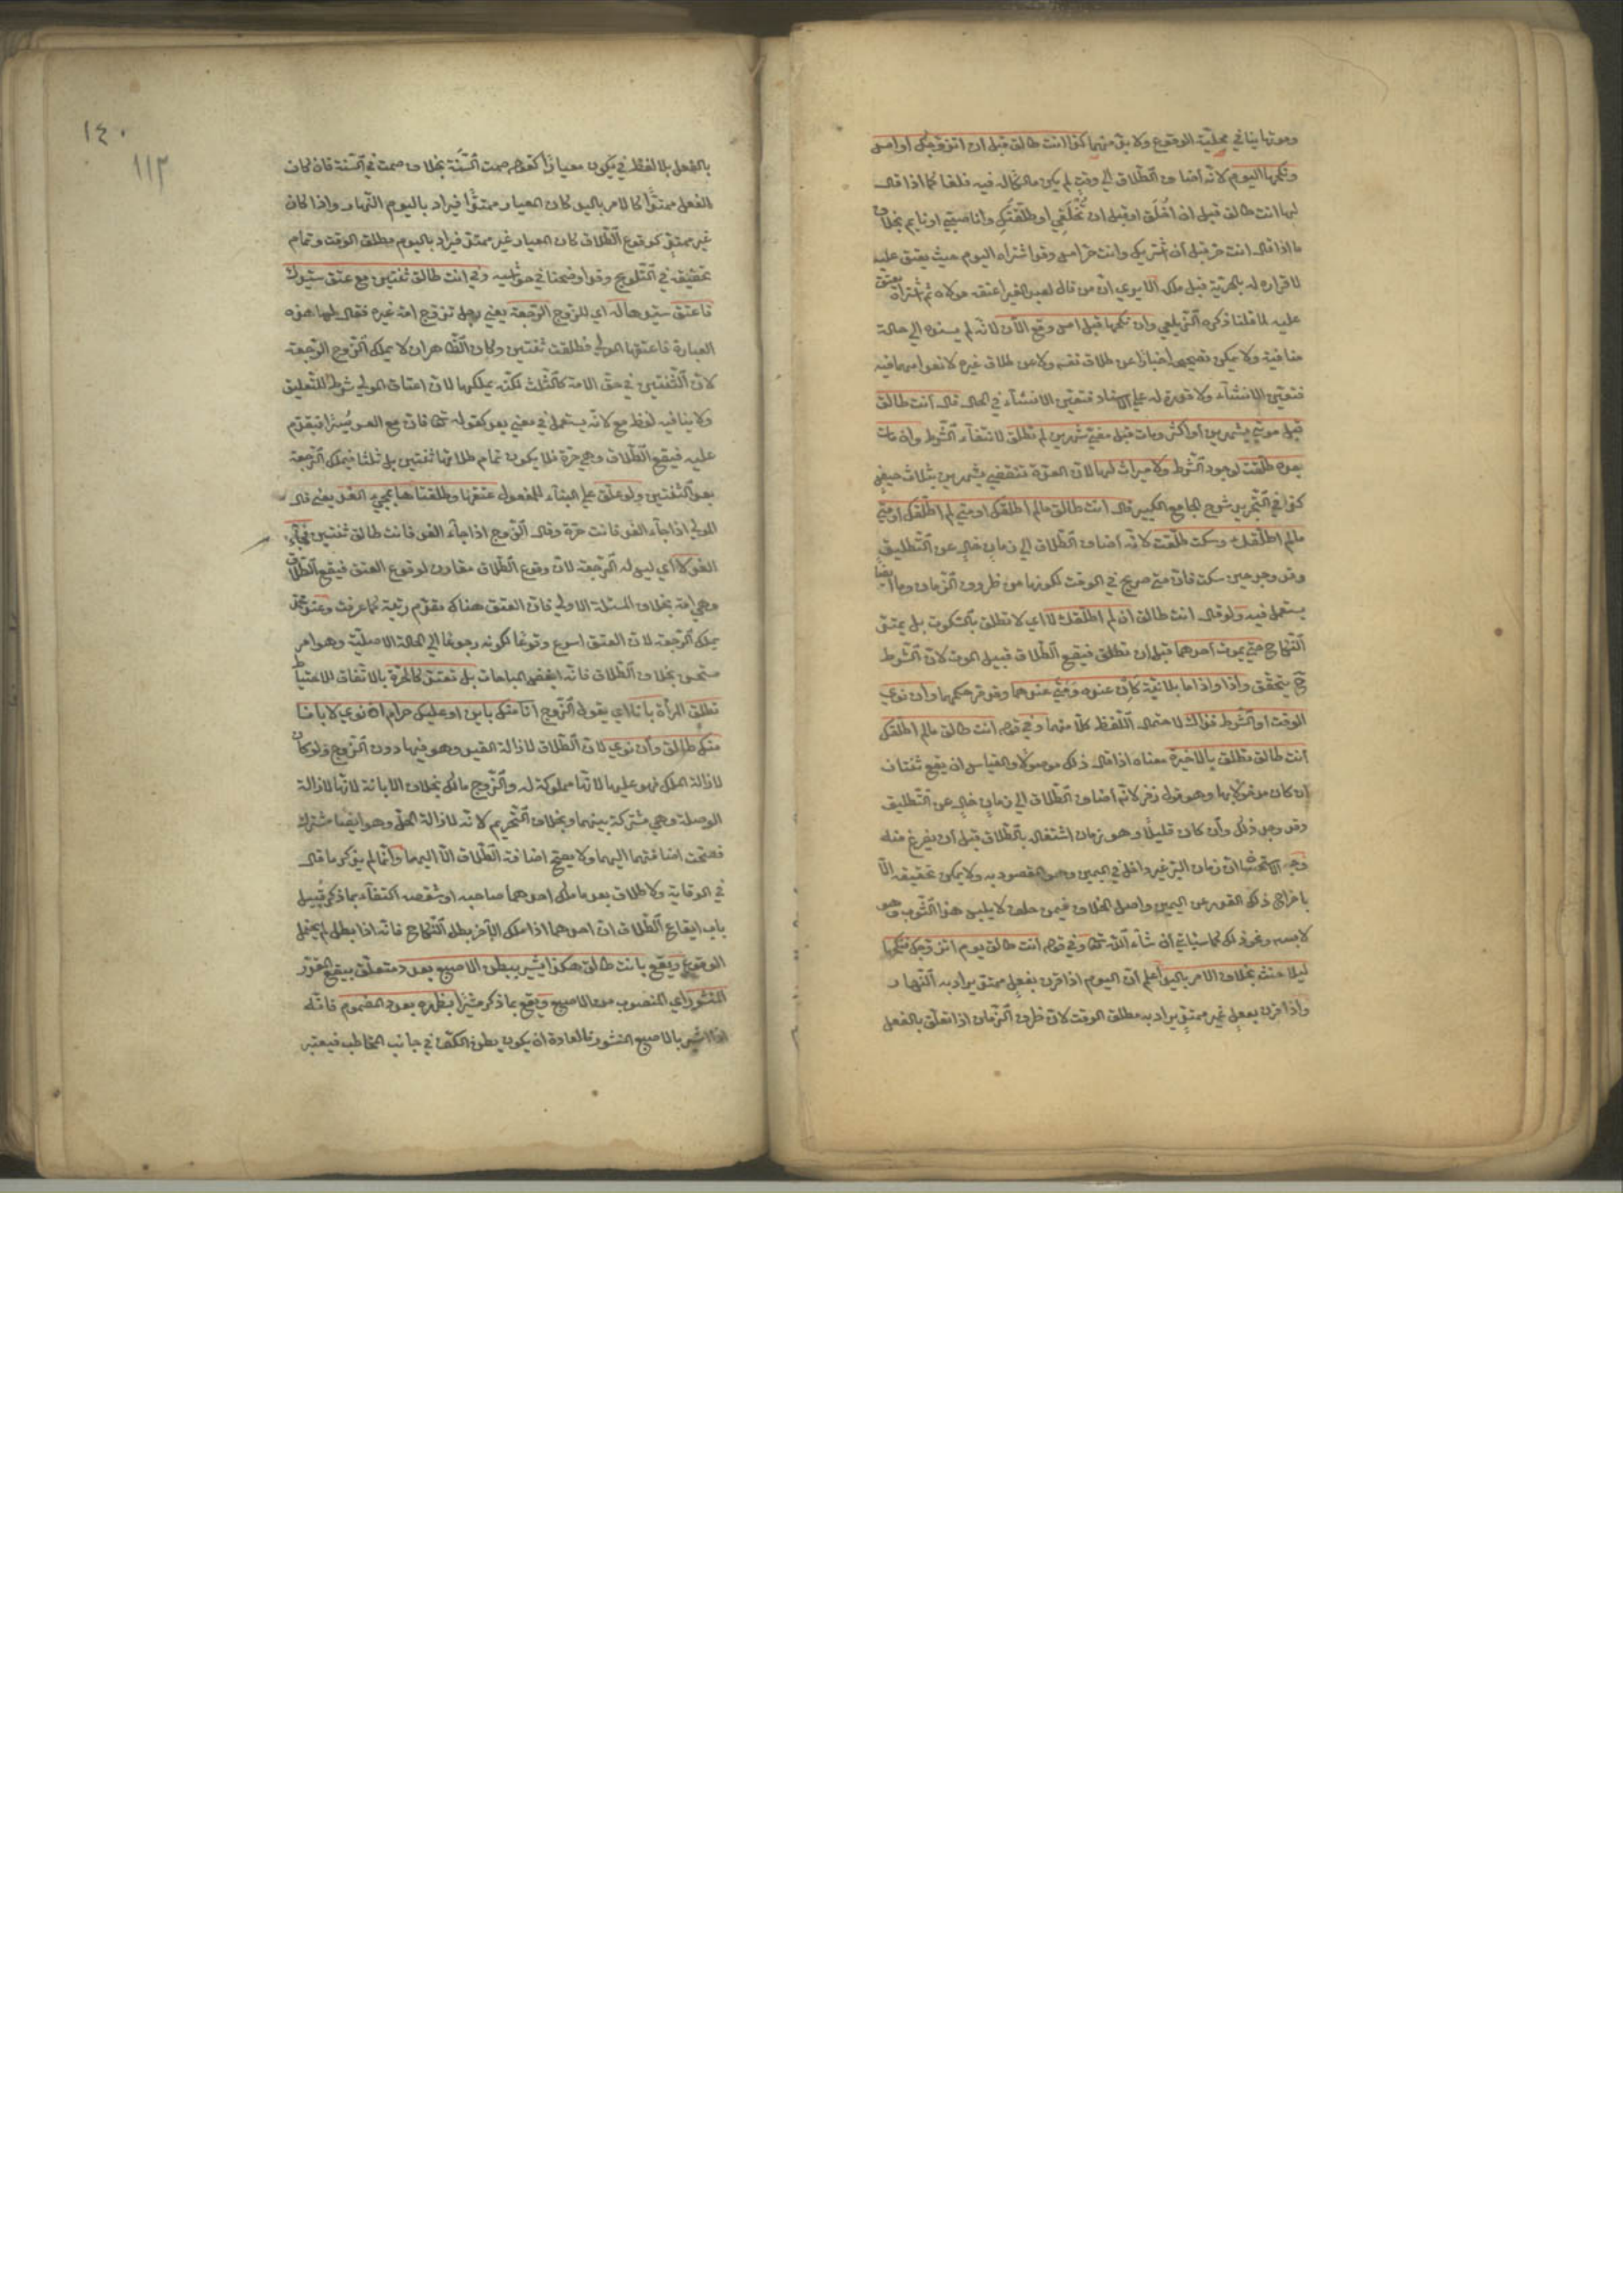 وموتها ينافي محلية الوقوع ولا بد منهما كذا انت طالق قبل ان اتزوجك او امس
ونكحها اليوم لانه اضاف الطلاق الى وقت لم يكن مالكا له فيه فلغا كما اذا قال
لها انت طالق قبل ان اخلق او قبل ان تخلقي او طلقتك وانا صبي او نايم بخلاف
ما اذا قال انت حر قبل ان اشتريك وانت حر امس وقد اشتراه اليوم حيث يعتق عليه
لاقراره له بالحرية قبل ملكه الا يرى ان من قال لعبد الغير اعتقه مولاه ثم اشتراه يعتق
عليه لما قلنا ذكره الزيلعي وان نكحها قبل امس وقع الآن لانه لم يسنده الى حالة
منافية ولا يمكن تصحيحه اخبارا عن طلاق نفسه ولا عن طلاق غيره لانعدامهما فيه
فتعين الانشاء ولا قدرة له على الاسناد فتعين الانشاء في الحال قال انت طالق
قبل موتي بشهرين او اكثر ومات قبل مضي شهرين لم تطلق لانتفاء الشرط وان مات
بعده طلقت لوجود الشرط ولا ميراث لها لان العدة تنقضي بشهرين بثلاث حيض
كذا في التحرير شرح الجامع الكبير قال انت طالق ما لم اطلقك او متى لم اطلقك او متى
ما لم اطلقك وسكت طلقت لانه اضاف الطلاق الى زمان خال عن التطليق
وقد وجد حين سكت فان متى صريح في الوقت لكونها من ظروف الزمان وما ايضا
يستعمل فيه ولو قال انت طالق ان لم اطلقك لا اي لا تطلق بالسكوت بل يمتد
النكاح حتى يموت احدهما قبل ان تطلق فيقع الطلاق قبيل الموت لان الشرط
ح يتحقق واذا واذا ما بلا نية كان عنده ومتى عندهما وقد مر حكمهما وان نوى
الوقت او الشرط فذاك لاحتمال اللفظ كلا منهما وفي قوله انت طالق ما لم اطلقك
انت طالق تطلق بالاخيرة معناه اذا قال ذلك موصولا والقياس ان يقع ثنتان
ان كان مدخولا بها وهو قول زفر لانه اضاف الطلاق الى زمان خال عن التطليق
وقد وجد ذلك وان كان قليلا وهو زمان اشتغاله بالطلاق قبل ان يفرغ منه
وجه الاستحسان ان زمان البر غير داخل في اليمين وهو المقصود به ولا يمكن تحقيقه الا
باخراج ذلك القدر عن اليمين واصل الخلاف فيمن حلف لا يلبس هذا الثوب وهو
لابسه ونحو ذلك كما سيأتي ان شاء الله تعالى وفي قوله انت طالق يوم اتزوجك فنكحها
ليلا حنث بخلاف الامر باليد اعلم ان اليوم اذا قرن بفعل ممتد يراد به النهار
واذا قرن بفعل غير ممتد يراد به مطلق الوقت لان ظرف الزمان اذا تعلق بالفعل
١٤٠
١١٣
بالفعل بلا لفظ في يكون معيارا كقولهم صمت السنة بخلاف صمت في السنة فان كان
الفعل ممتدا كالامر باليد كان المعيار ممتدا فيراد باليوم النهار واذا كان
غير ممتد كوقوع الطلاق كان المعيار غير ممتد فيراد باليوم مطلق الوقت وتمام
تحقيقه في التلويح وقد اوضحنا في حواشيه وفي انت طالق ثنتين مع عتق سيدك
فاعتق سيدها له اي للزوج الرجعة يعني رجل تزوج امة غيره فقال لها هذه
العبارة فاعتقها المولى فطلقت ثنتين وكان الظاهر ان لا يملك الزوج الرجعة
لان الثنتين في حق الامة كالثلث لكنه يملكها لان اعتاق المولى شرط للتعليق
ولا ينافيه لفظ مع لانه يستعمل في معنى بعد كقوله تعالى فان مع العسر يسرا فيتقدم
عليه فيقع الطلاق وهي حرة فلا يكون تمام طلاقها ثنتين بل ثلثا فيملك الرجعة
بعد الثنتين ولو علق على البناء للمفعول عتقها وطلقتاها بمجيء الغد يعني قال
المولى اذا جاء الغد فانت حرة وقال الزوج اذا جاء الغد فانت طالق ثنتين فجاء
الغد لا اي ليس له الرجعة لان وقوع الطلاق مقارن لوقوع العتق فيقع الطلاق
وهي امة بخلاف المسئلة الاولى فان العتق هناك مقدم رتبة كما عرفت وعند محمد
يملك الرجعة لان العتق اسرع وقوعا لكونه رجوعا الى الحالة الاصلية وهو امر
مستحسن بخلاف الطلاق فانه ابغض المباحات بل تعتد كالحرة بالاتفاق للاحتياط
تطلق المرأة بانا اي بقول الزوج انا منك باين او عليك حرام ان نوى لا بانا
منك طالق وان نوى لان الطلاق لازالة القيد وهو فيها دون الزوج ولو كان
لازالة الملك فهو عليها لانها مملوكة له والزوج مالك بخلاف الابانة لانها لازالة
الوصلة وهي مشتركة بينهما وبخلاف التحريم لانه لازالة الحل وهو ايضا مشترك
فصحت اضافتهما اليهما ولا يصح اضافة الطلاق الا اليها وانما لم يذكر ما قال
في الوقاية ولا طلاق بعد ما ملك احدهما صاحبه او شقصه اكتفاء بما ذكر قبيل
باب ايقاع الطلاق ان احدهما اذا ملك الآخر بطل النكاح فانه اذا بطل لم يحتمل
الوقوع ويقع بانت طالق هكذا يشير ببطن الاصبع بعدد متعلق بيقع المقدر
المنشور اي المنصوب من الاصبع ويقع بما ذكر مشيرا بظهره بعدد المضموم فانه
اذا اشير بالاصبع المنشور فالعادة ان يكون بطن الكف في جانب المخاطب فيعتبر